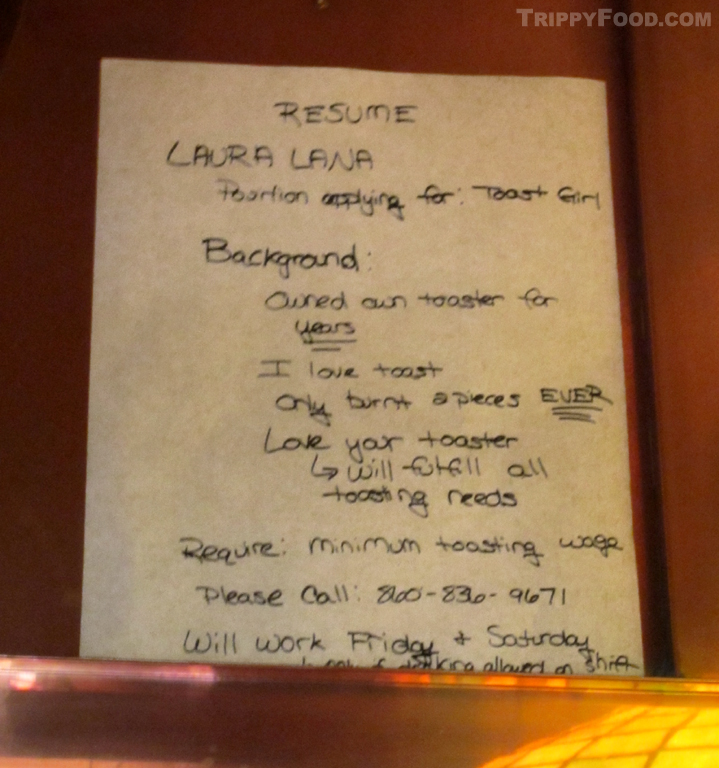 TRIPPYFOOD.COM
RESUME
LAURA LANA
Position applying for: Toast Girl
Background:
Owned own toaster for
years
I love toast
Only burnt 2 pieces EVER
Love your toaster
↳ will fulfill all
toasting needs
Require: minimum toasting wage
Please Call: 860-836-9671
Will work Friday + Saturday
allowed on shift